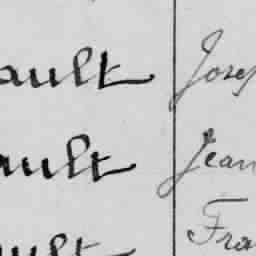 ault Jose
ault Jean
ault Fra